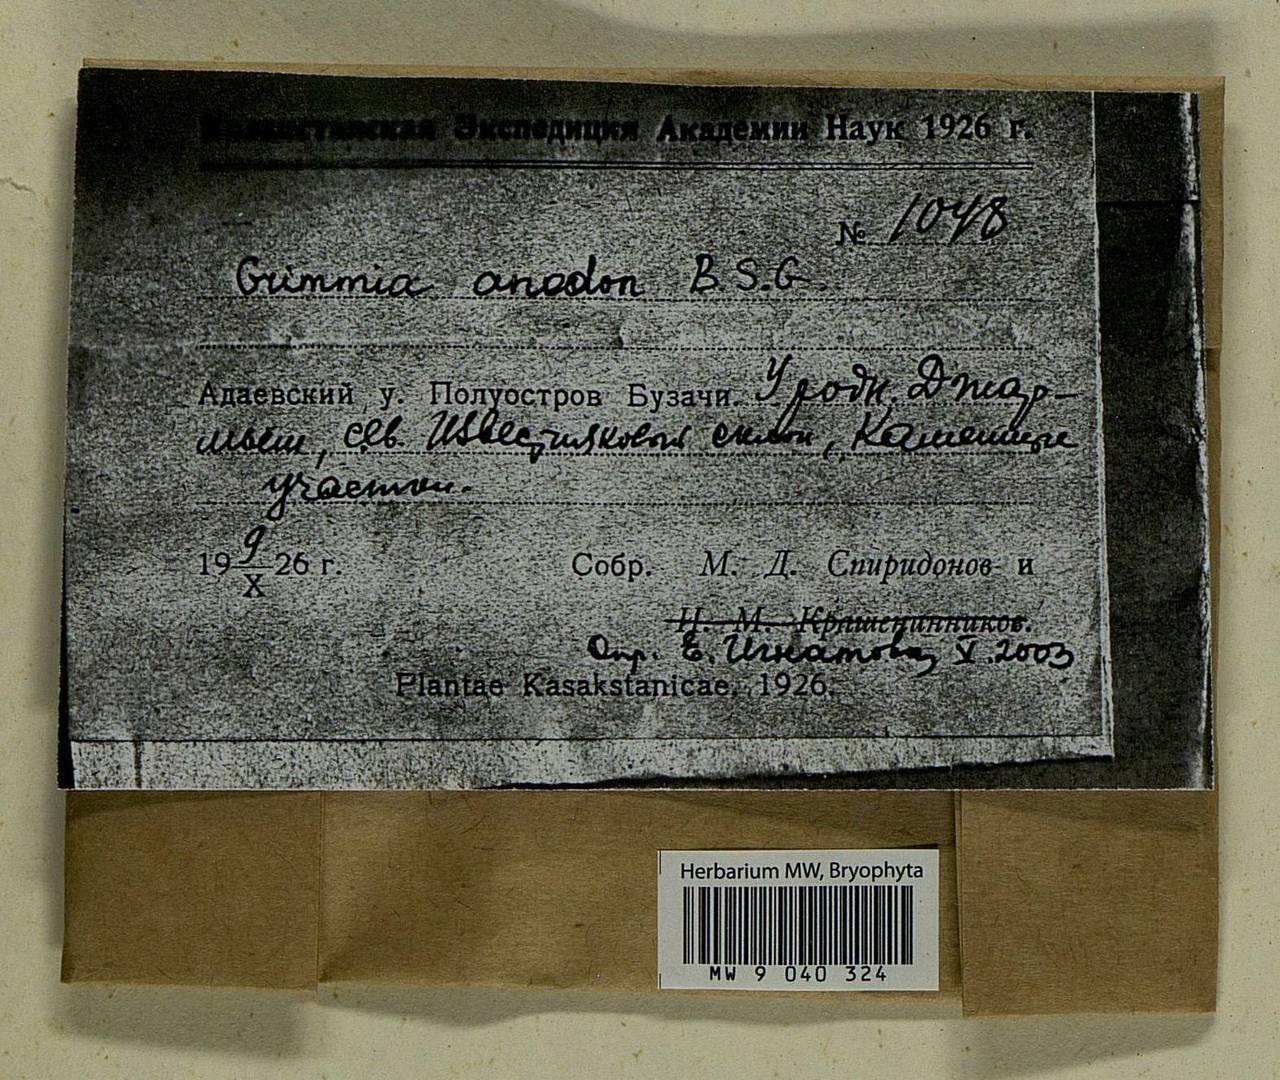 Казакстанская Экспедиция Академии Наук 1926 г.
№ 1048
Grimmia anodon B.S.G.
Адаевский у. Полуостров Бузачи. Урочн. Джар-
мыш, сев. Известняковый склон, Каменистый
участок.
19 9/X 26 г. Собр. М. Д. Спиридонов и
И. М. Крашенинников.
Опр. Е. Игнатова, V.2003
Plantae Kasakstanicae. 1926.
Herbarium MW, Bryophyta
MW 9 040 324